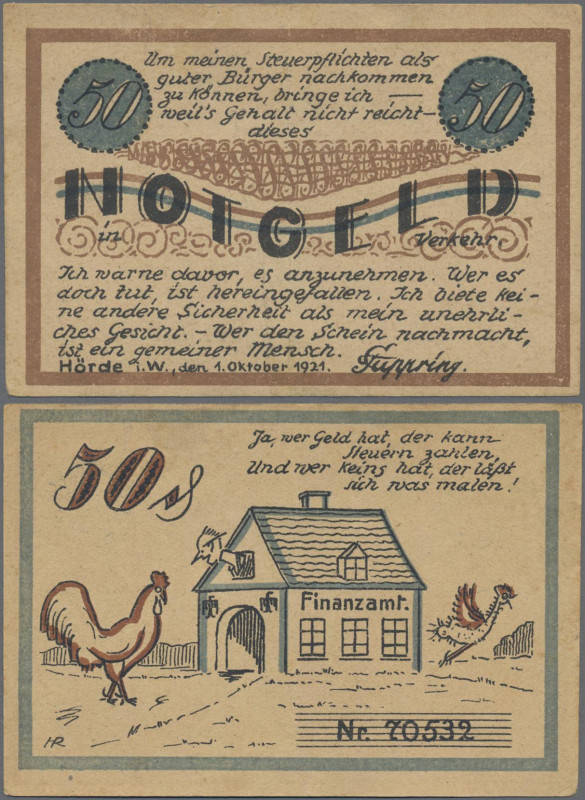 Um meinen Steuerpflichten als
guter Bürger nachkommen
zu können, bringe ich —
weil's Gehalt nicht reicht-
dieses
50
50
NOTGELD
in Verkehr.
Ich warne davor, es anzunehmen. Wer es
doch tut, ist hereingefallen. Ich biete kei-
ne andere Sicherheit als mein unehrli-
ches Gesicht. - Wer den Schein nachmacht,
ist ein gemeiner Mensch.
Hörde i.W., den 1. Oktober 1921. Tuppring.
50 ₰
Ja, wer Geld hat, der kann
Steuern zahlen,
Und wer keins hat, der läßt
sich was malen!
Finanzamt.
Nr. 70532
HR